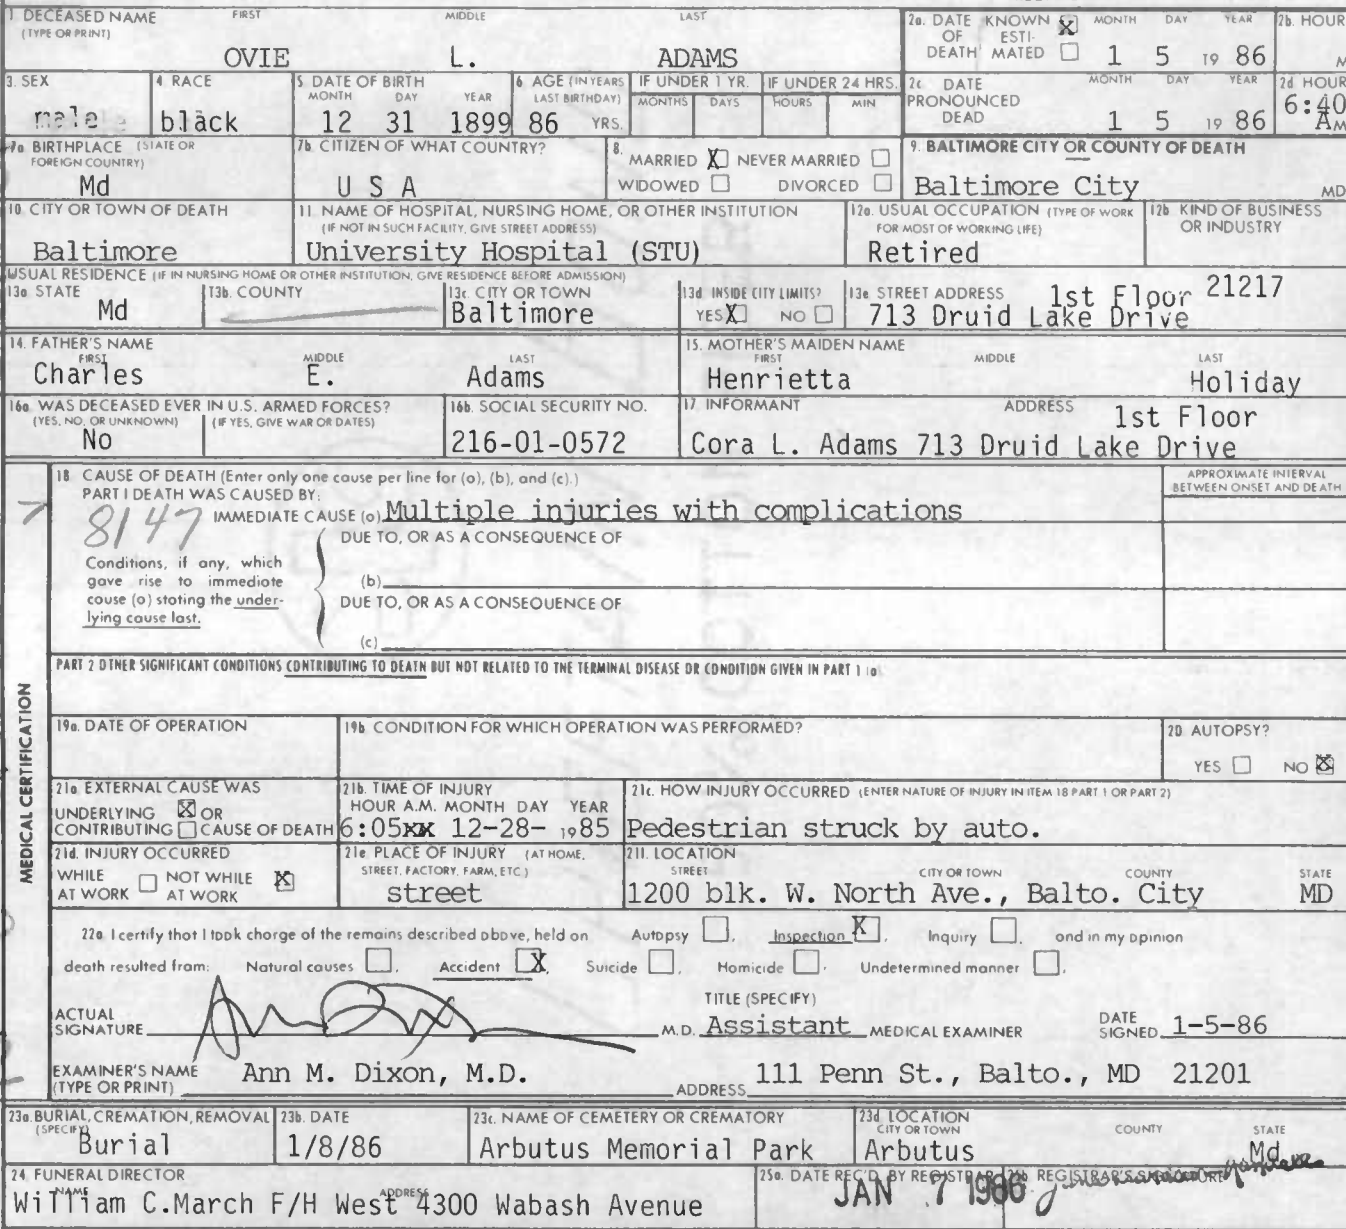 1. DECEASED NAME (TYPE OR PRINT) FIRST MIDDLE LAST
OVIE L. ADAMS
2a. DATE OF DEATH KNOWN X ESTIMATED MONTH DAY YEAR
1 5 19 86
2b. HOUR M
3. SEX
male
4. RACE
black
5. DATE OF BIRTH MONTH DAY YEAR
12 31 1899
6. AGE (IN YEARS LAST BIRTHDAY)
86 YRS.
IF UNDER 1 YR. MONTHS DAYS
IF UNDER 24 HRS. HOURS MIN
2c. DATE PRONOUNCED DEAD MONTH DAY YEAR
1 5 19 86
2d. HOUR
6:40 AM
7a. BIRTHPLACE (STATE OR FOREIGN COUNTRY)
Md
7b. CITIZEN OF WHAT COUNTRY?
U S A
8. MARRIED X NEVER MARRIED
WIDOWED DIVORCED
9. BALTIMORE CITY OR COUNTY OF DEATH
Baltimore City MD
10. CITY OR TOWN OF DEATH
Baltimore
11. NAME OF HOSPITAL, NURSING HOME, OR OTHER INSTITUTION
(IF NOT IN SUCH FACILITY, GIVE STREET ADDRESS)
University Hospital (STU)
12a. USUAL OCCUPATION (TYPE OF WORK FOR MOST OF WORKING LIFE)
Retired
12b. KIND OF BUSINESS OR INDUSTRY
USUAL RESIDENCE (IF IN NURSING HOME OR OTHER INSTITUTION, GIVE RESIDENCE BEFORE ADMISSION)
13a. STATE
Md
13b. COUNTY
13c. CITY OR TOWN
Baltimore
13d. INSIDE CITY LIMITS?
YES X NO
13e. STREET ADDRESS 1st Floor 21217
713 Druid Lake Drive
14. FATHER'S NAME FIRST MIDDLE LAST
Charles E. Adams
15. MOTHER'S MAIDEN NAME FIRST MIDDLE LAST
Henrietta Holiday
16a. WAS DECEASED EVER IN U.S. ARMED FORCES?
(YES, NO, OR UNKNOWN) (IF YES, GIVE WAR OR DATES)
No
16b. SOCIAL SECURITY NO.
216-01-0572
17. INFORMANT ADDRESS 1st Floor
Cora L. Adams 713 Druid Lake Drive
MEDICAL CERTIFICATION
18. CAUSE OF DEATH (Enter only one cause per line for (a), (b), and (c).)
APPROXIMATE INTERVAL BETWEEN ONSET AND DEATH
PART I DEATH WAS CAUSED BY:
8147
IMMEDIATE CAUSE (a) Multiple injuries with complications
DUE TO, OR AS A CONSEQUENCE OF
Conditions, if any, which
gave rise to immediate
cause (a) stating the under-
lying cause last.
(b)
DUE TO, OR AS A CONSEQUENCE OF
(c)
PART 2 OTHER SIGNIFICANT CONDITIONS CONTRIBUTING TO DEATH BUT NOT RELATED TO THE TERMINAL DISEASE OR CONDITION GIVEN IN PART 1 (a)
19a. DATE OF OPERATION
19b. CONDITION FOR WHICH OPERATION WAS PERFORMED?
20. AUTOPSY?
YES NO X
21a. EXTERNAL CAUSE WAS
UNDERLYING X OR
CONTRIBUTING CAUSE OF DEATH
21b. TIME OF INJURY
HOUR A.M. MONTH DAY YEAR
6:05xx 12-28- 1985
21c. HOW INJURY OCCURRED (ENTER NATURE OF INJURY IN ITEM 18 PART 1 OR PART 2)
Pedestrian struck by auto.
21d. INJURY OCCURRED
WHILE AT WORK NOT WHILE AT WORK X
21e. PLACE OF INJURY (AT HOME, STREET, FACTORY, FARM, ETC.)
street
21f. LOCATION STREET CITY OR TOWN COUNTY STATE
1200 blk. W. North Ave., Balto. City MD
22a. I certify that I took charge of the remains described above, held on Autopsy , Inspection X , Inquiry , and in my opinion
death resulted from: Natural causes , Accident X , Suicide , Homicide , Undetermined manner .
ACTUAL SIGNATURE M.D. TITLE (SPECIFY) Assistant MEDICAL EXAMINER DATE SIGNED 1-5-86
EXAMINER'S NAME (TYPE OR PRINT) Ann M. Dixon, M.D. ADDRESS 111 Penn St., Balto., MD 21201
23a. BURIAL, CREMATION, REMOVAL (SPECIFY)
Burial
23b. DATE
1/8/86
23c. NAME OF CEMETERY OR CREMATORY
Arbutus Memorial Park
23d. LOCATION CITY OR TOWN COUNTY STATE
Arbutus Md
24. FUNERAL DIRECTOR
NAME ADDRESS
William C.March F/H West 4300 Wabash Avenue
25a. DATE REC'D. BY REGISTRAR
JAN 7 1986
25b. REGISTRAR'S SIGNATURE